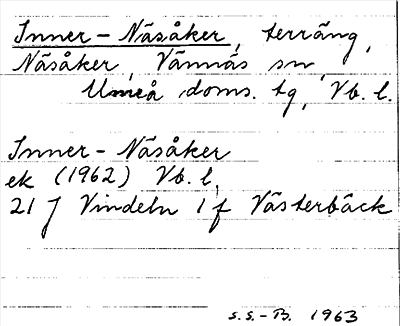 Inner-Näsåker, terräng,
Näsåker, Vännäs sn
Umeå doms. tg, Vb. l.
Inner-Näsåker
ek (1962) Vb. l,
21 J Vindeln 1 f Västerbäck
S.S.-B. 1963